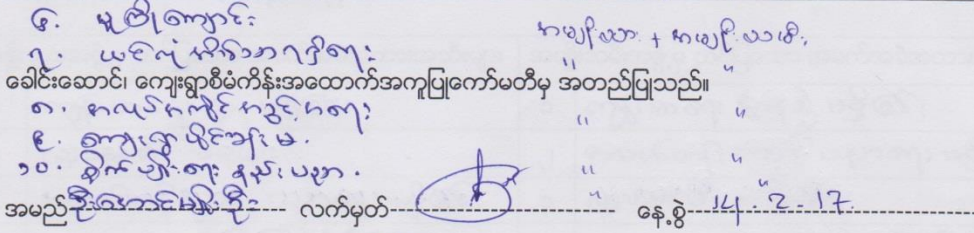 ၆. မူကြိုကျောင်း အမျိုးသား + အမျိုးသမီး
၇. ယင်လုံအိမ်သာရရှိရေး " "
ခေါင်းဆောင်၊ ကျေးရွာစီမံကိန်းအထောက်အကူပြုကော်မတီမှ အတည်ပြုသည်။
၈. အလုပ်အကိုင်အခွင့်အရေး " "
၉ ကျေးရွာပိုင်ခန်းမ. " "
၁၀. စိုက်ပျိုးရေး နည်းပညာ. " "
အမည် ဦးအောင်မျိုးဦး လက်မှတ် နေ့စွဲ 14.2.17.